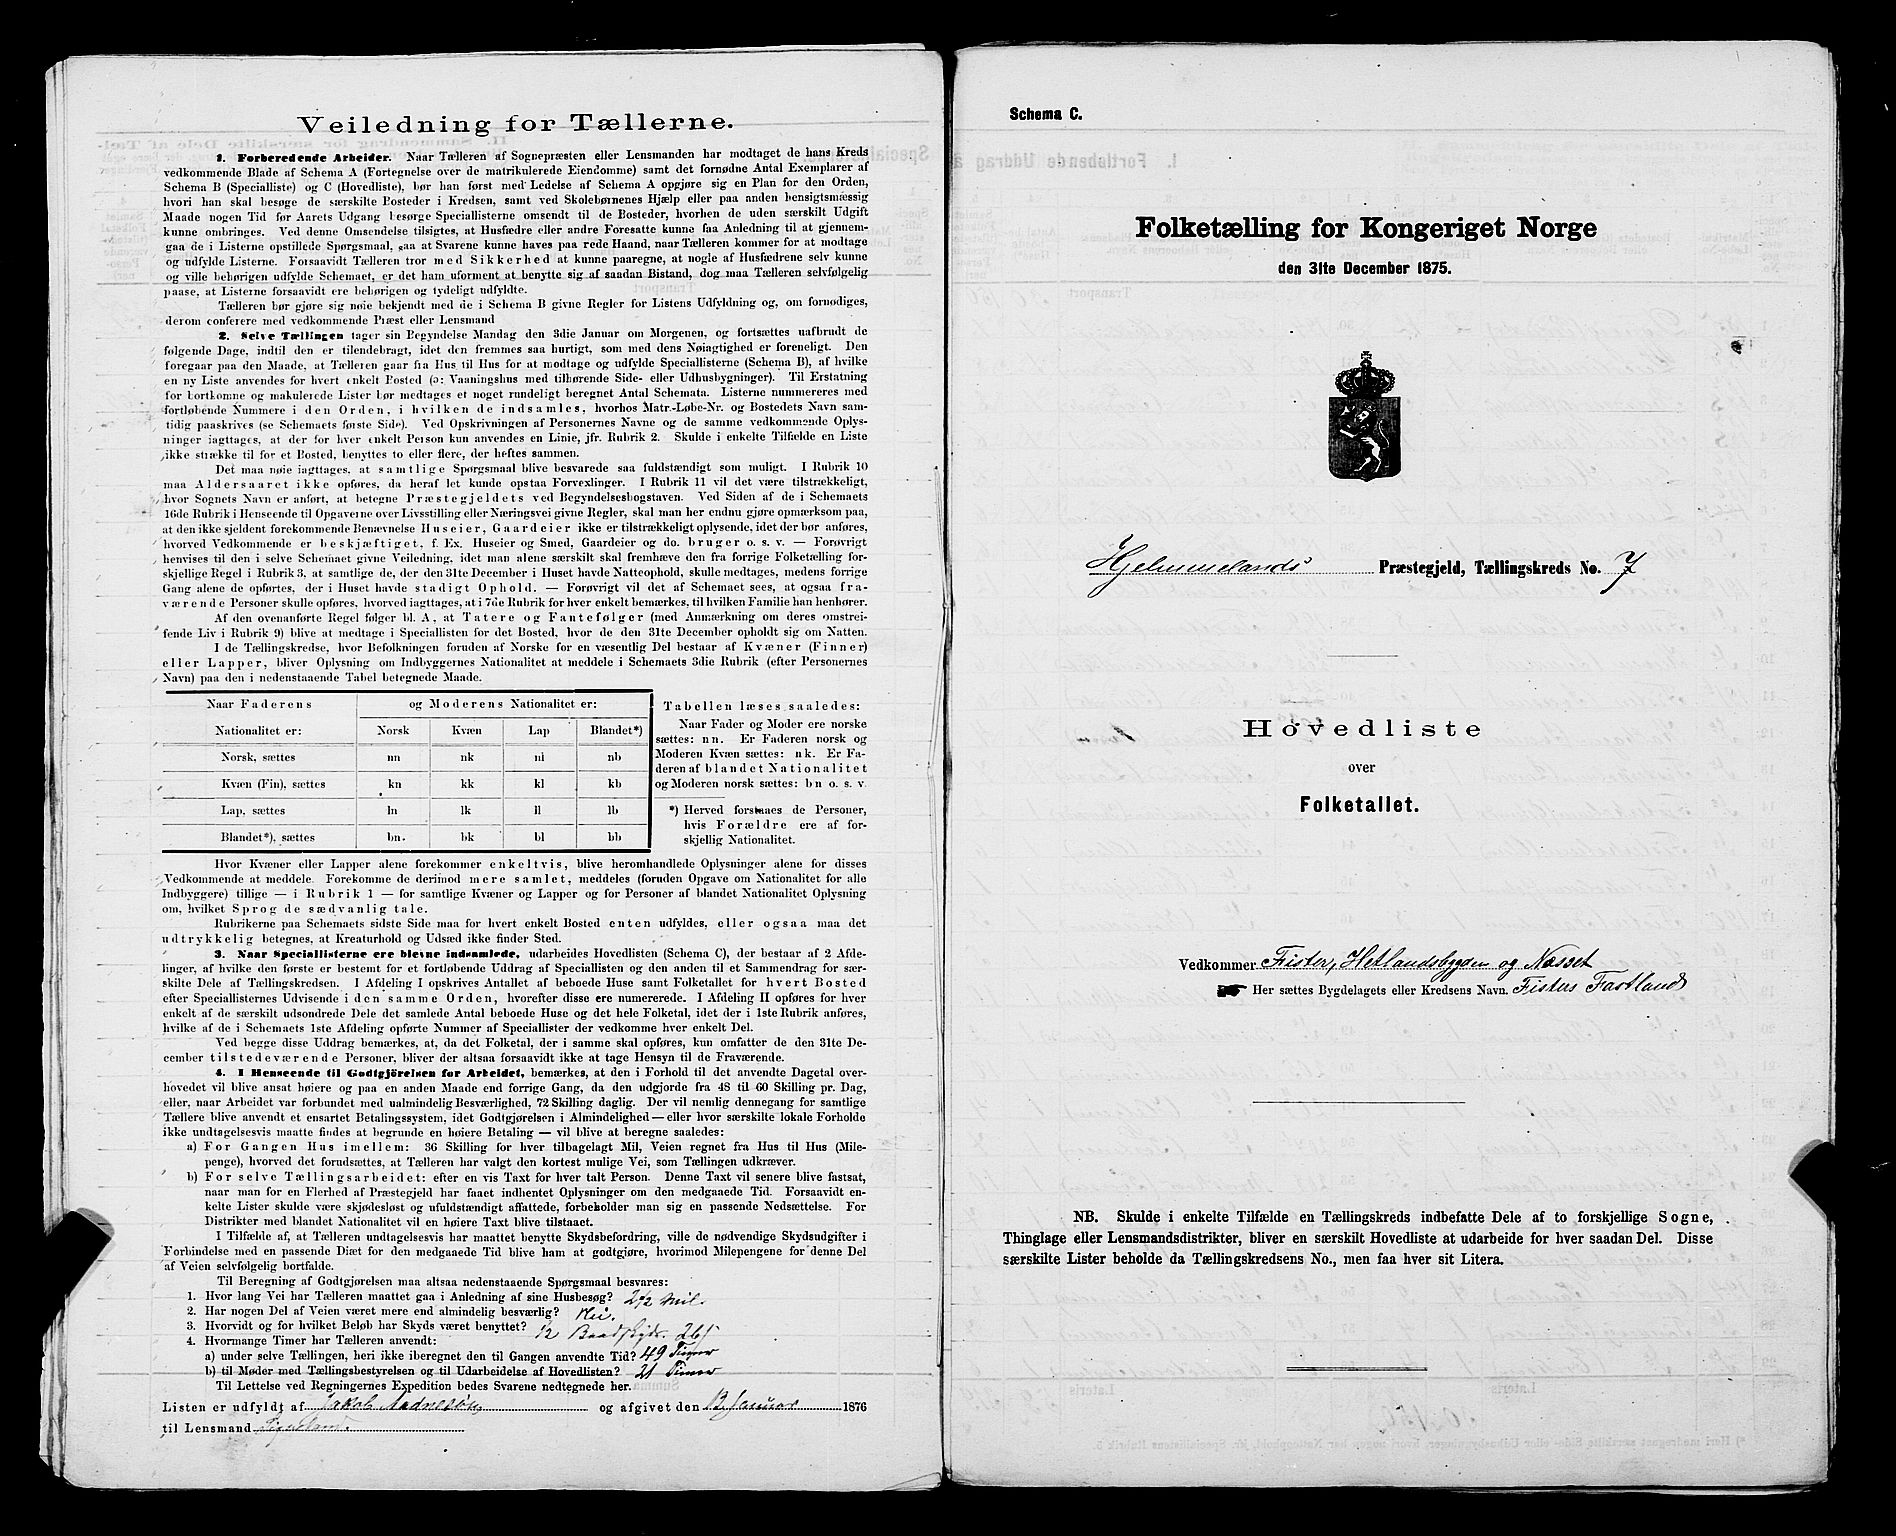 Veiledning for Tællerne.
1. Forberedende Arbeider. Naar Tælleren af Sognepræsten eller Lensmanden har modtaget de hans Kreds
vedkommende Blade af Schema A (Fortegnelse over de matrikulerede Eiendomme) samt det fornødne Antal Exemplarer af
Schema B (Specialliste) og C (Hovedliste), bør han først med Ledelse af Schema A opgjøre sig en Plan for den Orden,
hvori han skal besøge de særskilte Bosteder i Kredsen, samt ved Skolebørnenes Hjælp eller paa anden hensigtsmæssig
Maade nogen Tid før Aarets Udgang besørge Speciallisterne omsendt til de Bosteder, hvorhen de uden særskilt Udgift
kunne ombringes. Ved denne Omsendelse tilsigtes, at Husfædre eller andre Foresatte kunne faa Anledning til at gjennem-
gaa de i Listerne opstillede Spørgsmaal, saa at Svarene kunne haves paa rede Haand, naar Tælleren kommer for at modtage
og udfylde Listerne. Forsaavidt Tælleren tror med Sikkerhed at kunne paaregne, at nogle af Husfædrene selv kunne
og ville behørigen udfylde Schemaet, er det ham uforment at benytte sig af saadan Bistand, dog maa Tælleren selvfølgelig
paase, at Listerne forsaavidt ere behørigen og tydeligt udfyldte.
Tælleren bør gjøre sig nøie bekjendt med de i Schema B givne Regler for Listens Udfyldning og, om fornødiges,
derom conferere med vedkommende Præst eller Lensmand
2. Selve Tællingen tager sin Begyndelse Mandag den 3die Januar om Morgenen, og fortsættes uafbrudt de
følgende Dage, indtil den er tilendebragt, idet den fremmes saa hurtigt, som med dens Nøiagtighed er foreneligt. Den
foregaar paa den Maade, at Tælleren gaar fra Hus til Hus for at modtage og udfylde Speciallisterne (Schema B), af hvilke
en ny Liste anvendes for hvert enkelt Bosted (ɔ: Vaaningshus med tilhørende Side- eller Udhusbygninger). Til Erstatning
for bortkomne og makulerede Lister bør medtages et noget rundeligt beregnet Antal Schemata. Listerne nummereres med
fortløbende Nummere i den Orden, i hvilken de indsamles, hvorhos Matr.-Løbe-Nr. og Bostedets Navn sam-
tidig paaskrives (se Schemaets første Side). Ved Opskrivningen af Personernes Navne og de samme vedkommende Oplys-
ninger iagttages, at der for hver enkelt Person kun anvendes en Linie, jfr. Rubrik 2. Skulde i enkelte Tilfælde en Liste
ikke strække til for et Bosted, benyttes to eller flere, der heftes sammen.
Det maa nøie iagttages, at samtlige Spørgsmaal blive besvarede saa fuldstændigt som muligt. I Rubrik 10
maa Aldersaaret ikke opføres, da heraf let kunde opstaa Forvexlinger. I Rubrik 11 vil det være tilstrækkeligt,
hvor Sognets Navn er anført, at betegne Præstegjeldets ved Begyndelsesbogstaven. Ved Siden af de i Schemaets
16de Rubrik i Henseende til Opgaverne over Livsstilling eller Næringsvei givne Regler, skal man her endnu gjøre opmærksom paa,
at den ikke sjeldent forekommende Benævnelse Huseier, Gaardeier ikke er tilstrækkeligt oplysende, idet der bør anføres,
hvorved Vedkommende er beskjæftiget, f. Ex. Huseier og Smed, Gaardeier og do. bruger o. s. v. — Forøvrigt
henvises til den i selve Schemaet givne Veiledning, idet man alene særskilt skal fremhæve den fra forrige Folketælling for-
skjellige Regel i Rubrik 3, at samtlige de, der den 31te December i Huset havde Natteophold, skulle medtages, medens forrige
Gang alene de opførtes, der i Huset havde stadigt Ophold. — Forøvrigt vil det af Schemaet sees, at ogsaa fra-
værende Personer skulle opføres, hvorved iagttages, at i 7de Rubrik for hver enkelt bemærkes, til hvilken Familie han henhører.
Af den ovenanførte Regel følger bl. A, at Tatere og Fantefølger (med Anmærkning om deres omstrei-
fende Liv i Rubrik 9) blive at medtage i Speciallisten for det Bosted, hvor de den 31te December opholdt sig om Natten.
I de Tællingskredse, hvor Befolkningen foruden af Norske for en væsentlig Del bestaar af Kvæner (Finner)
eller Lapper, bliver Oplysning om Indbyggernes Nationalitet at meddele i Schemaets 3die Rubrik (efter Personernes
Navn) paa den i nedenstaaende Tabel betegnede Maade.
Naar Faderens og Moderens Nationalitet er:
Nationalitet er: Norsk Kvæn Lap Blandet*)
Norsk, sættes nn nk nl nb
Kvæn (Fin), sættes kn kk kl kb
Lap, sættes ln lk ll lb
Blandet*), sættes bn. bk bl bb
Tabellen læses saaledes:
Naar Fader og Moder ere norske
sættes: nn. Er Faderen norsk og
Moderen Kvæn sættes: nk. Er Fa-
deren af blandet Nationalitet
og Moderen norsk sættes: bn o. s. v.
*) Herved forstaaes de Personer,
hvis Forældre ere af for-
skjellig Nationalitet.
Hvor Kvæner eller Lapper alene forekommer enkeltvis, blive heromhandlede Oplysninger alene for disses
Vedkommende at meddele. Forekomme de derimod mere samlet, meddeles (foruden Opgave om Nationalitet for alle
Indbyggere) tillige — i Rubrik 1 — for samtlige Kvæner og Lapper og for Personer af blandet Nationalitet Oplysning
om, hvilket Sprog de sædvanlig tale.
Rubrikerne paa Schemaets sidste Side maa for hvert enkelt Bosted enten udfyldes, eller ogsaa maa det
udtrykkelig betegnes, at Kreaturhold og Udsæd ikke finder Sted.
3. Naar Speciallisterne ere blevne indsamlede, udarbeides Hovedlisten (Schema C), der bestaar af 2 Afde-
linger, af hvilke den første er bestemt for et fortløbende Uddrag af Speciallisten og den anden til et Sammendrag for sær-
skilte Dele af Tællingskredsen. I Afdeling I opskrives Antallet af beboede Huse samt Folketallet for hvert Bosted
efter Speciallisternes Udvisende i den samme Orden, hvorefter disse ere nummererede. I Afdeling II opføres for hver
enkelt af de særskilt udsondrede Dele det samlede Antal beboede Huse og det hele Folketal, idet der i 1ste Rubrik anføres,
hvilke af de i Schemaets 1ste Afdeling opførte Nummer af Speciallister der vedkomme hver enkelt Del.
Ved begge disse Uddrag bemærkes, at, da det Folketal, der i samme skal opføres, kun omfatter de den 31te De-
cember tilstedeværende Personer, bliver der altsaa forsaavidt ikke at tage Hensyn til de Fraværende.
4. I Henseende til Godtgjörelsen for Arbeidet, bemærkes, at den i Forhold til det anvendte Dagetal over-
hovedet vil blive ansat høiere og paa en anden Maade end forrige Gang, da den udgjorde fra 48 til 60 Skilling pr. Dag,
eller, naar Arbeidet var forbundet med ualmindelig Besværlighed, 72 Skilling daglig. Der vil nemlig dennegang for samtlige
Tællere blive anvendt et ensartet Betalingssystem, idet Godtgjørelsen i Almindelighed — eller hvor særskilte lokale Forholde
ikke undtagelsesvis maatte findes at begrunde en høiere Betaling — vil blive at beregne saaledes:
a) For Gangen Hus imellem: 36 Skilling for hver tilbagelagt Mil, Veien regnet fra Hus til Hus (Mile-
penge), hvorved det forudsættes, at Tælleren har valgt den kortest mulige Vei, som Tællingen udkræver.
b) For selve Tællingsarbeidet: efter en vis Taxt for hver talt Person. Denne Taxt vil senere blive fastsat,
naar man for en Flerhed af Præstegjeld har faaet indhentet Oplysninger om den medgaaede Tid. Forsaavidt en-
kelte Lister skulde være skjødesløst og ufuldstændigt affattede, forbeholder man sig en passende Nedsættelse. For
Distrikter med blandet Nationalitet vil en høiere Taxt blive tilstaaet.
I Tilfælde af, at Tælleren undtagelsesvis har maattet benytte Skydsbefordring, ville de nødvendige Skydsudgifter i
Forbindelse med en passende Diæt for den medgaaede Tid blive ham at godtgjøre, hvorimod Milepengene for denne Del
af Veien selvfølgelig bortfalde.
Til Beregning af Godtgjørelsen maa altsaa nedenstaaende Spørgsmaal besvares:
1. Hvor lang Vei har Tælleren maattet gaa i Anledning af sine Husbesøg? 2 1/2 Mil.
2. Har nogen Del af Veien været mere end almindelig besværlig? Nei.
3. Hvorvidt og for hvilket Beløb har Skyds været benyttet?
4. Hvormange Timer har Tælleren anvendt:
a) under selve Tællingen, heri ikke iberegnet den til Gangen anvendte Tid? 49 Timer
b) til Møder med Tællingsbestyrelsen og til Udarbeidelse af Hovedlisten? 21 Timer
Til Lettelse ved Regningernes Expedition bedes Svarene nedtegnede her.
Listen er udfyldt af Jakob Aadnesøn og afgivet den Januar 1876
til Lensmand
Schema C.
Folketælling for Kongeriget Norge
den 31te December 1875.
Hjelmmelands Præstegjeld, Tællingskreds No. 7
Hovedliste
over
Folketallet.
Vedkommer Fister, Hetlandsbygden og Næsset
Her sættes Bygdelagets eller Kredsens Navn. Fisters Fastland
NB. Skulde i enkelte Tilfælde en Tællingskreds indbefatte Dele af to forskjellige Sogne,
Thinglage eller Lensmandsdistrikter, bliver en særskilt Hovedliste at udarbeide for hver saadan Del. Disse
særskilte Lister beholde da Tællingskredsens No., men faa hver sit Litera.